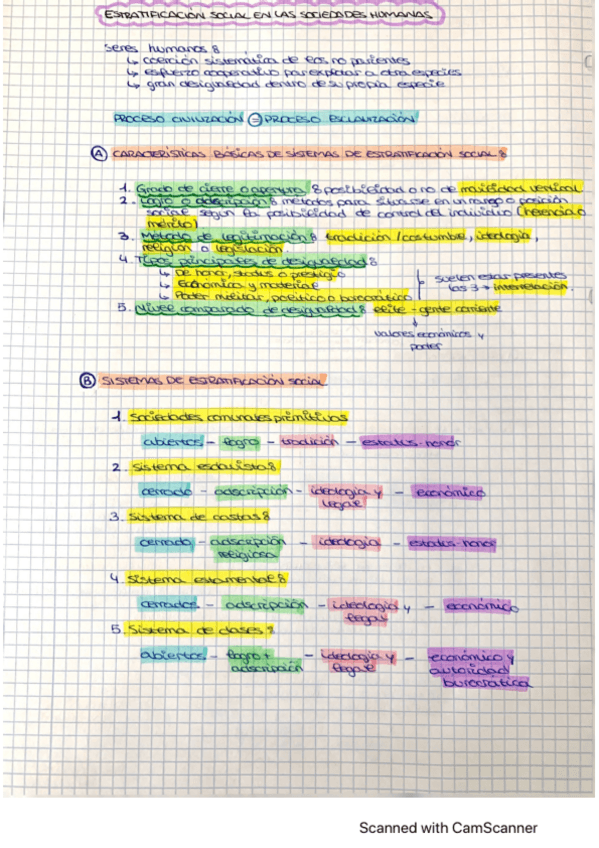 ESTRATIFICACIÓN SOCIAL EN LAS SOCIEDADES HUMANAS
Seres humanos:
↳ coerción sistemática de los no parientes
↳ esfuerzo cooperativo para explotar a otra especies
↳ gran desigualdad dentro de su propia especie
PROCESO CIVILIZACIÓN = PROCESO ESCLAVIZACIÓN
A CARACTERÍSTICAS BÁSICAS DE SISTEMAS DE ESTRATIFICACIÓN SOCIAL:
1. Grado de cierre o apertura: posibilidad o no de movilidad vertical
2. Logro o adscripción: métodos para situarse en un rango o posición
social según la posibilidad de control del individuo (herencia o
mérito)
3. Método de legitimación: tradición/costumbre, ideología,
religión o legislación.
4. Tipos principales de desigualdad:
↳ De honor, status o prestigio
↳ Económica y material
↳ Poder militar, político o burocrático
suelen estar presentes
las 3 → interrelación.
5. Nivel comparado de desigualdad: élite - gente corriente
↓
valores económicos y
poder
B SISTEMAS DE ESTRATIFICACIÓN SOCIAL
1. Sociedades comunales primitivas
abiertos - logro - tradición - estatus-honor
2. Sistema esclavista:
cerrado - adscripción - ideología y - económico
legal
3. Sistema de castas:
cerrado - adscripción - ideología - estatus-honor
religiosa
4. Sistema estamental:
cerrados - adscripción - ideología y - económico
legal
5. Sistema de clases:
abiertos - logro + - ideología y - económico y
adscripción legal autoridad
burocrática
Scanned with CamScanner